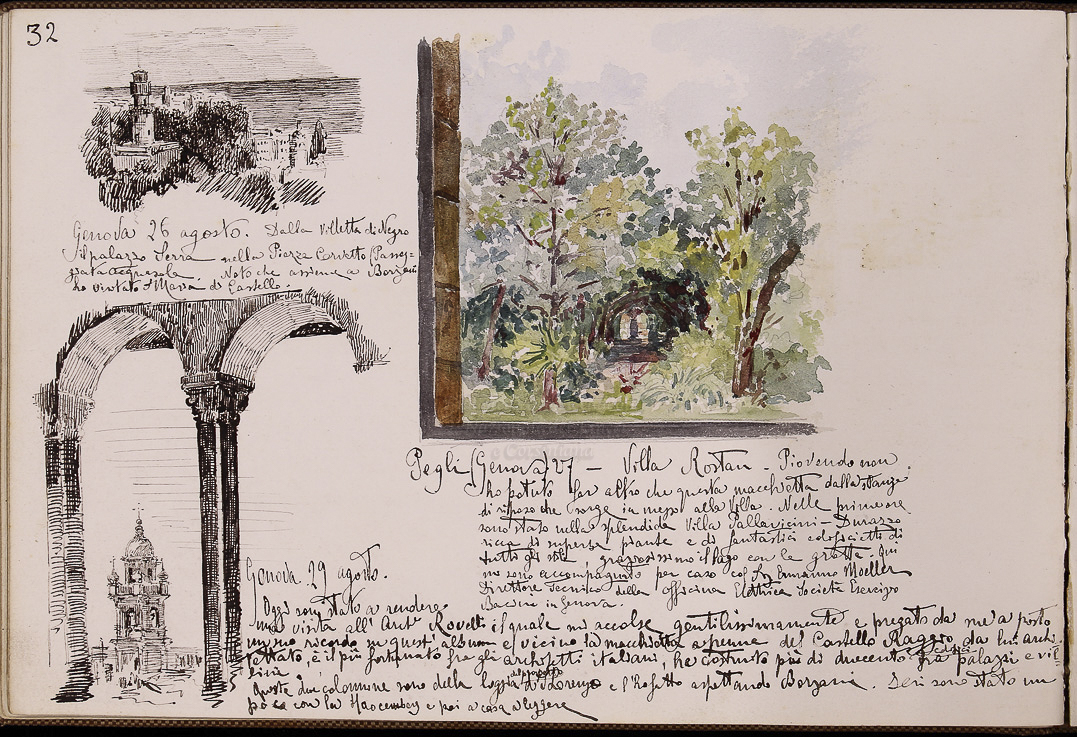 32
Genova 26 agosto. Dalla Villetta di Negro
il palazzo Serra nella Piazza Corvetto (Passeg-
giata Acquasola. Noto che assieme a Borzani
ho visitato S Maria di Castello.
Pegli (Genova) 27 — Villa Rostan - Piovendo non
ho potuto far altro che questa macchietta dalla stanza
di riposo che sorge in mezzo alla Villa. Nelle prime ore
sono stato nella splendida Villa Pallavicini - Durazzo
ricca di superbe piante e di fantastici edificietti di
tutti gli stili, graziosissimo il lago con la grotta. Qui
mi sono accompagnato per caso col Ermanno Moeller
Direttore Tecnico della officina Elettrica Società Esercizio
Bacini in Genova.
Genova 29 agosto.
Oggi sono stato a rendere
una visita all'Arch Rovelli il quale mi accolse gentilissimamente e pregato da me a porto
un suo ricordo in quest'album e vicino la macchietta a penna del Castello Raggio da lui archi-
tettato, è il più fortunato fra gli architetti italiani, ha costruito più di duecento edifici fra palazzi e vil-
lini.
Queste due colonnine sono della loggia di S Lorenzo e l'ho fatto aspettando Borzani. Ieri sono stato un
po' con la e poi a casa a leggere